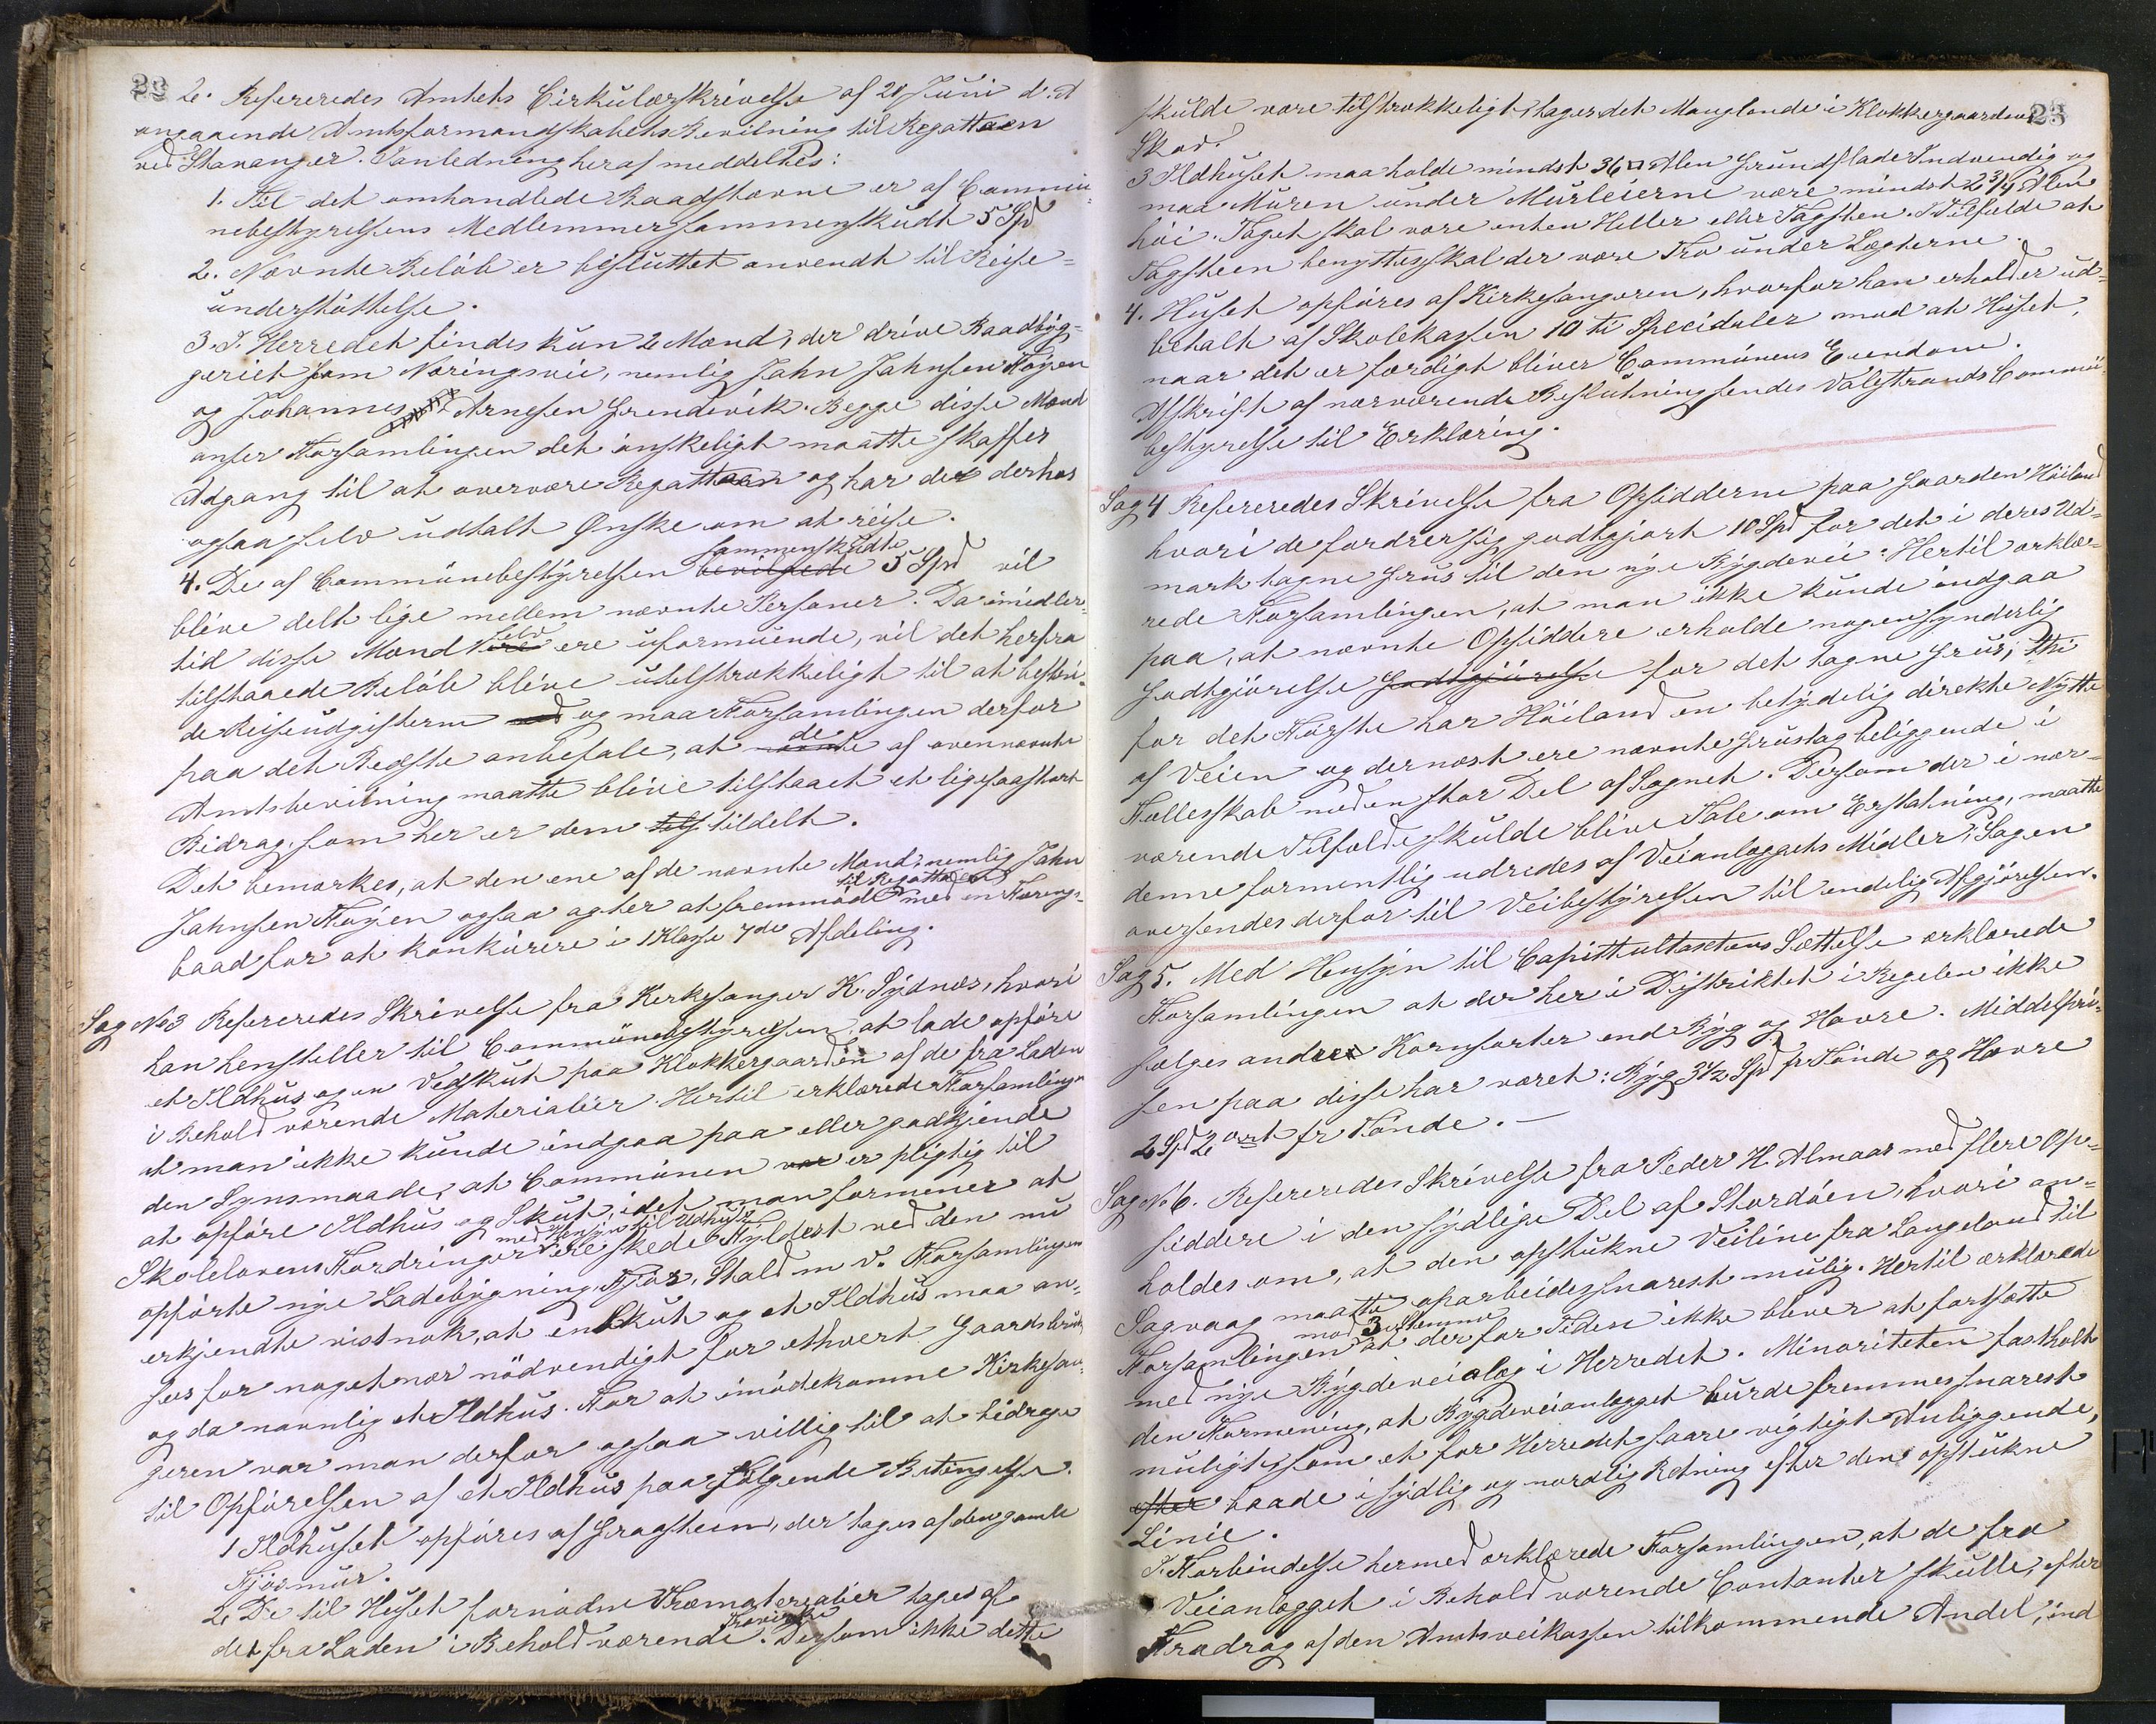 22
2. Refereredes Amtets Cirkulærskrivelse af 20 Juni d. A
angaaende Amtsformandskabets Bevilning til Regattaen
ved Stavanger. I anledning heraf meddeltes:
1. Til det omhandlede Baadstævne er af Commu-
nebestyrelsens Medlemmer sammenskudt 5 Spd
2. Nævnte Beløb er besluttet anvendt til Reise-
understøttelse.
3. I Herredet findes kun 2 Mænd, der drive Baadbyg-
geriet som Næringsvei, nemlig Jahn Jahnsen Høyen
og Johannes Arnesen Grendevik. Begge disse Mænd
anser Forsamlingen det ønskeligt maatte skaffes
Adgang til at overvære Regattaen og har de derhos
ogsaa selv udtalt Ønske om at reise.
4. De af Communebestyrelsen bevilgede sammenskudte 5 Spd vil
blive delt lige mellem nævnte Personer. Da imidler-
tid disse Mænd selv ere uformuende, vil det herfra
tilstaaede Beløb blive utilstrækkeligt til at bestri-
de Reiseudgifterne og maa Forsamlingen derfor
paa det Bedste anbefale, at de af ovennævnte
Amtsbevilning maatte blive tilstaaet et ligesaastort
Bidrag, som her er dem tils tildelt.
Det bemærkes, at den ene af de nævnte Mænd, nemlig Jahn
Jahnsen Høyen ogsaa agter at fremmøde til Regattaen med en Færings-
baad for at konkurere i 1 Klasse 7de Afdeling.
Sag No 3 Refereredes Skrivelse fra Kirkesanger K. Sydnes, hvori
han henstiller til Communebestyrelsen at lade opføre
et Ildhus og en Vedskut paa Klokkergaarden af de fra Laden
i Behold værende Materialier. Hertil erklærede Forsamlingen
at man ikke kunde indgaa paa eller godkjende
den Synsmaade, at Communen var er pligtig til
at opføre Ildhus og Skut, idet man formener at
Skolelovens Fordringer med Hensyn til Udhuse ere skede Fyldest ved den nu
opførte nye Ladebygning, Fjøs, Stald m. v. Forsamlingen
erkjendte vistnok, at en Skut og et Ildhus maa an-
sees for noget nær nødvendigt for ethvert Gaardsbrug
og da navnlig et Ildhus. For at imødekomme Kirkesan-
geren var man derfor ogsaa villig til at bidrage
til Opførelsen af et Ildhus paa følgende Betingelser.
1 Ildhuset opføres af Graasteen, der tages af den gamle
Fjøsmur.
2. De til Huset fornødne Træmaterialier tages af
det fra Laden i Behold værende Trævirke. Dersom ikke dette
23
skulde være tilstrækkeligt, tages det Manglende i Klokkergaardens
Skov.
3 Ildhuset maa holde mindst 36 □ Alen Grundflade Indvendig og
maa Muren under Murleierne være mindst 2 3/4 Alen
høi. Taget skal være enten Heller eller Tagsten. I Tilfælde at
Tagsteen benyttes skal der være Tro under Lægterne.
4. Huset opføres af Kirkesangeren, hvorfor han erholder ud-
betalt af Skolekassen 10 ti Speciedaler mod at Huset,
naar det er færdigt bliver Communens Eiendom.
Afskrift af nærværende Beslutning sendes Valestrands Commu-
bestyrelse til Erklæring.
Sag 4 Refereredes Skrivelse fra Opsidderne paa Gaarden Høiland
hvori de fordrer sig godtgjort 10 Spd for det i deres Ud-
mark tagne Grus til den nye Bygdevei. Hertil erklæ-
rede Forsamlingen, at man ikke kunde indgaa
paa, at nævnte Opsiddere erholde nogensynderlig
Godtgjørelse Godtgjørelse for det tagne Grus; thi
for det Første har Høiland en betydelig direkte Nytte
af Veien og dernæst ere nævnte Grustag beliggende i
Fælleskab med en stor Del af Sognet. Dersom der i nær-
værende Tilfælde skulde blive Tale om Erstatning, maatte
denne formentlig udredes af Veianlæggets Midler, Sagen
oversendes derfor til Veibestyrelsen til endelig Afgjørelsen.
Sag 5. Med Hensyn til Capittultaxtens Sættelse erklærede
Forsamlingen at der her i Distriktet i Regelen ikke
sælges andre Kornsorter end Byg og Havre. Middelpri-
sen paa disse har været: Byg 3 1/2 Spd pr Tønde og Havre
2 Spd 2 ort pr Tønde. —
Sag No 6. Refereredes Skrivelse fra Peder H. Almaas med flere Op-
siddere i den sydlige Del af Stordøen, hvori an-
holdes om, at den opstukne Veilinie fra Langeland til
Sagvaag maatte oparbeides snarest mulig. Hertil erklærede
Forsamlingen mod 3 Stemmer at der for Tiden ikke bliver at fortsætte
med nye Bygdeveianlæg i Herredet. Minoriteten fastholdt
den Formening, at Bygdeveianlægget burde fremmes snarest
muligt, som et for Herredet saare vigtigt Anliggende,
efter baade i sydlig og nordlig Retning efter den opstukne
Linie.
I Forbindelse hermed erklærede Forsamlingen, at de fra
Veianlægget i Behold værende Contanter skulle, efter
Fradrag af den Amtsveikassen tilkommende Andel, ind